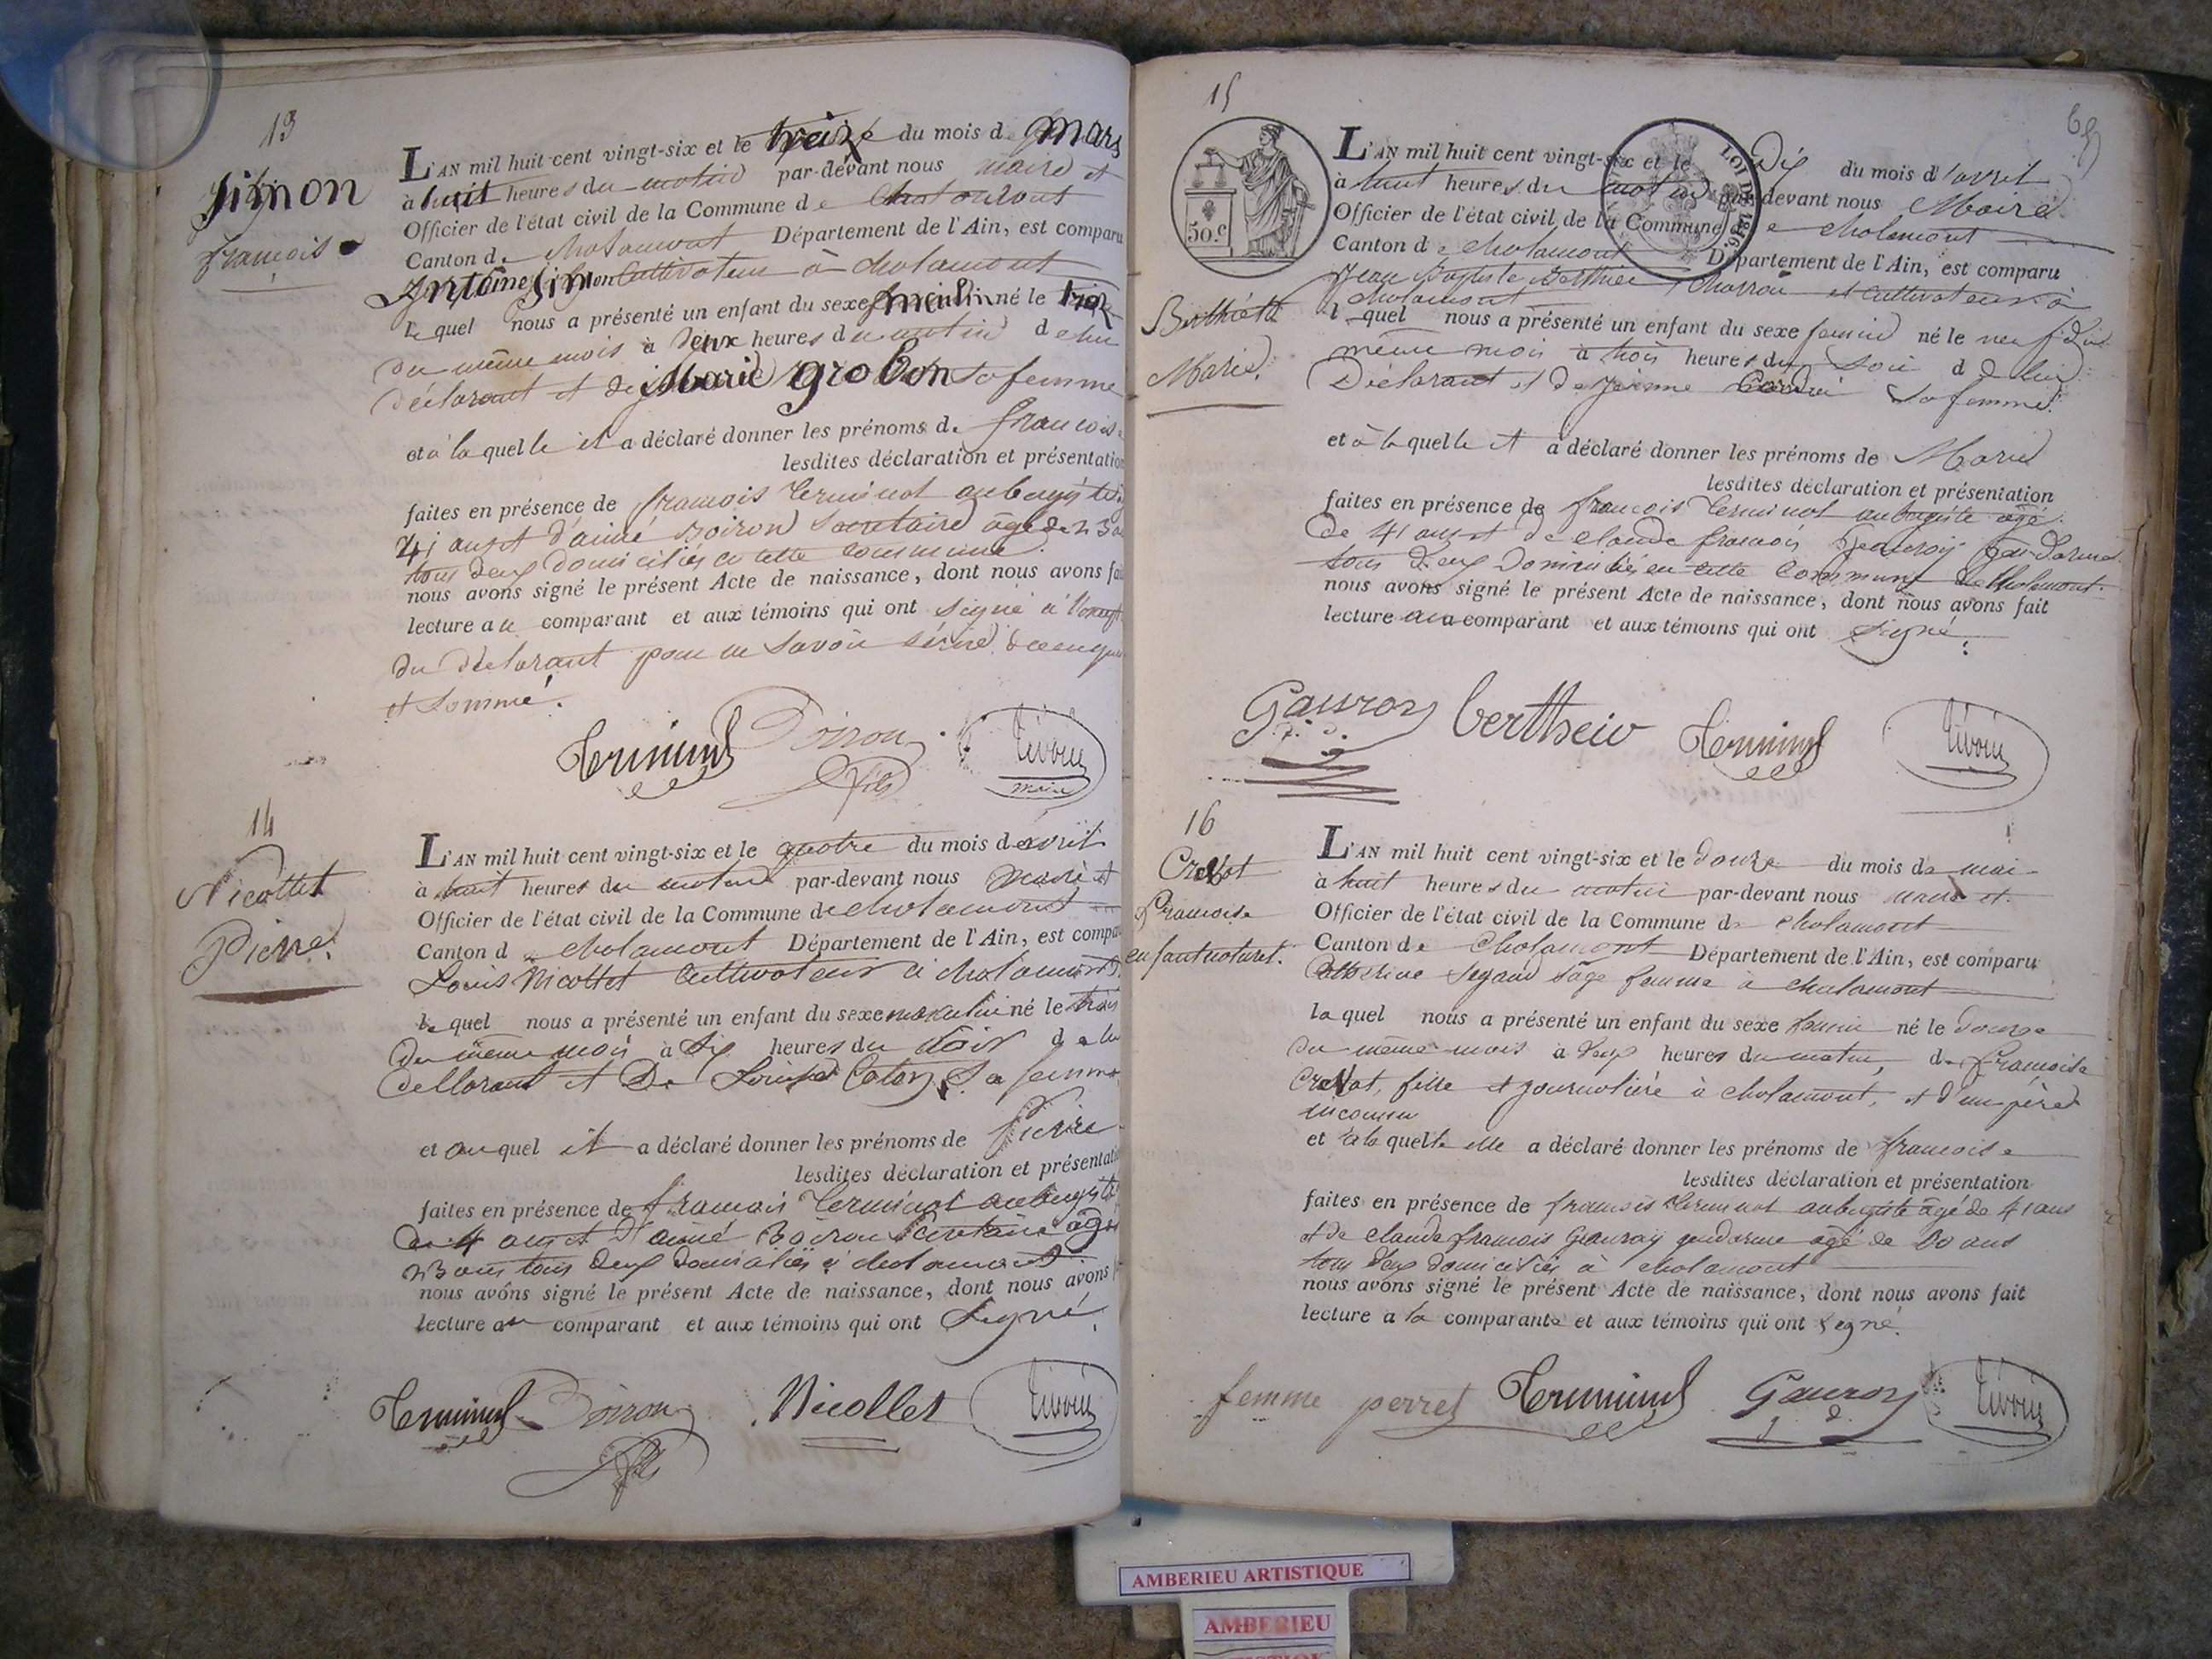 13
Simon
françois
L'AN mil huit cent vingt-six et le treize du mois de Mars
à huit heures du matin par-devant nous maire et
Officier de l'état civil de la Commune de Chalamont
Canton de chalamont Département de l'Ain, est comparu
Antoine Simon Cultivateur à chalamont
le quel nous a présenté un enfant du sexe masculin né le
du même mois à deux heures du matin de lui
déclarant et de Marie grobon sa femme
et à la quelle il a déclaré donner les prénoms de françois
lesdites déclaration et présentation
faites en présence de françois Terminet aubergiste
41 ans et d'aimé Boiron Secretaire âgé de 23 ans
tous deux domiciliés en cette commune
nous avons signé le présent Acte de naissance, dont nous avons fait
lecture au comparant et aux témoins qui ont signé à
du déclarant pour ne savoir écrire
et sommé.
Terminet Boiron fils Tivoin maire
14
Nicollet
Pierre
L'AN mil huit cent vingt-six et le quatre du mois d'avril
à huit heures du matin par-devant nous maire et
Officier de l'état civil de la Commune de chalamont
Canton de chalamont Département de l'Ain, est comparu
Louis Nicollet Cultivateur à chalamont
le quel nous a présenté un enfant du sexe masculin né le trois
du même mois à six heures du soir de lui
déclarant et De Louise Sa femme
et auquel il a déclaré donner les prénoms de Pierre
lesdites déclaration et présentation
faites en présence de françois Terminet aubergiste
de 4 ans et d'aimé Boiron Secretaire âgé
23 ans tous deux domiciliés à chalamont
nous avons signé le présent Acte de naissance, dont nous avons
lecture au comparant et aux témoins qui ont signé
Terminet Boiron fils Nicollet Tivoin
15
65
50 c
LOI DE 1816.
Marie
L'AN mil huit cent vingt-six et le Dix du mois d'avril
à huit heures du matin par-devant nous Maire
Officier de l'état civil de la Commune de chalamont
Canton de chalamont Département de l'Ain, est comparu
Jean Baptiste Berthier Charron et Cultivateur à
chalamont
l quel nous a présenté un enfant du sexe feminin né le neuf du
même mois à trois heures du soir de lui
Déclarant et de Jeanne sa femme
et à la quelle il a déclaré donner les prénoms de Marie
lesdites déclaration et présentation
faites en présence de françois Terminet aubergiste âgé
de 41 ans et de claude françois Gauroy Gendarme
tous deux Domiciliés en cette Commune de Chalamont.
nous avons signé le présent Acte de naissance, dont nous avons fait
lecture au comparant et aux témoins qui ont signé.
Gauroy Terminet Tivoin
16
Crevat
françoise
enfant naturel.
L'AN mil huit cent vingt-six et le douze du mois de mai
à huit heures du matin par-devant nous maire et
Officier de l'état civil de la Commune de chalamont
Canton de Chalamont Département de l'Ain, est comparu
Catherine Segaud sage femme à chalamont
la quel nous a présenté un enfant du sexe feminin né le douze
du même mois à deux heures du matin, de françoise
Crevat, fille et journalière à chalamont, et d'un père
inconnu
et à la quelle elle a déclaré donner les prénoms de françoise
lesdites déclaration et présentation
faites en présence de françois Terminet aubergiste âgé de 41 ans
et de claude françois Gauroy gendarme âgé de ans
tous deux domiciliés à chalamont
nous avons signé le présent Acte de naissance, dont nous avons fait
lecture a la comparante et aux témoins qui ont signé.
femme perret Terminet Gauroy Tivoin
AMBERIEU ARTISTIQUE
AMBERIEU